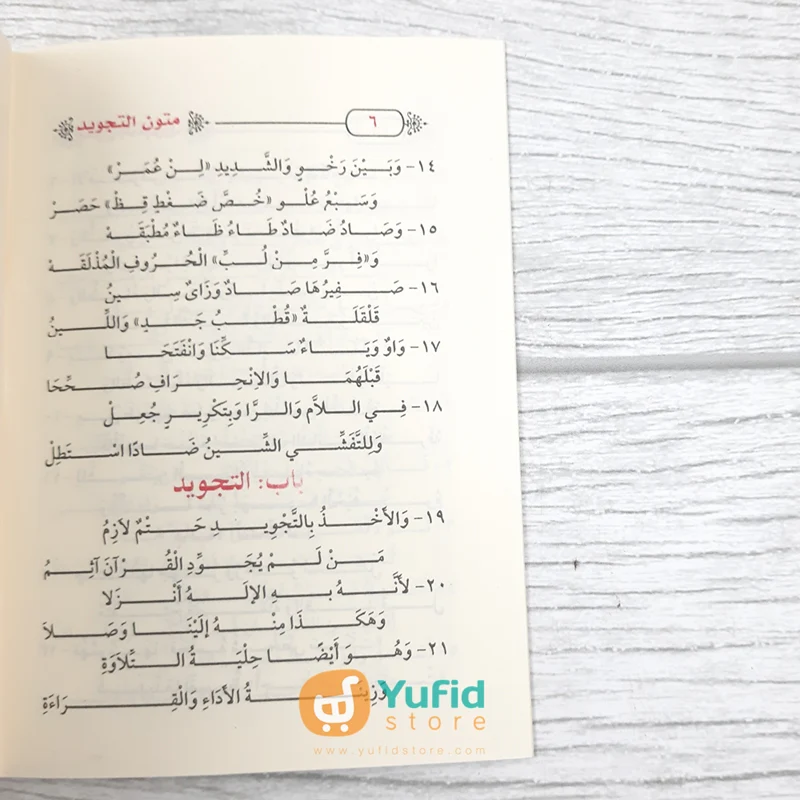 متون التجويد ٦
١٤- وَبَيْنَ رَخْوٍ وَالشَّدِيدِ «لِنْ عُمَرْ»
وَسَبْعُ عُلْوٍ «خُصَّ ضَغْطٍ قِظْ» حَصَرْ
١٥- وَصَادُ ضَادٌ طَاءُ ظَاءٌ مُطْبَقَهْ
وَ«فِرَّ مِنْ لُبِّ» الْحُرُوفِ الْمُذْلَقَهْ
١٦- صَفِيرُهَا صَادٌ وَزَايٌ سِينُ
قَلْقَلَةٌ «قُطْبُ جَدٍ» وَاللِّينُ
١٧- وَاوٌ وَيَاءٌ سَكَنَا وَانْفَتَحَا
قَبْلَهُمَا وَالاِنْحِرَافِ صُحِّحَا
١٨- فِي اللاَّمِ وَالرَّا وَبِتَكْرِيرٍ جُعِلْ
وَلِلتَّفَشِّي الشِّينُ ضَادًا اسْتَطِلْ
باب: التجويد
١٩- وَالأَخْذُ بِالتَّجْوِيدِ حَتْمٌ لاَزِمُ
مَنْ لَمْ يُجَوِّدِ الْقُرْآنَ آثِمُ
٢٠- لأَنَّهُ بِهِ الإِلَهُ أَنْزَلا
وَهَكَذَا مِنْهُ إِلَيْنَا وَصَلاَ
٢١- وَهُوَ أَيْضًا حِلْيَةُ التِّلاَوَةِ
وَزِينَةُ الأَدَاءِ وَالْقِرَاءَةِ
Yufid
store
www.yufidstore.com